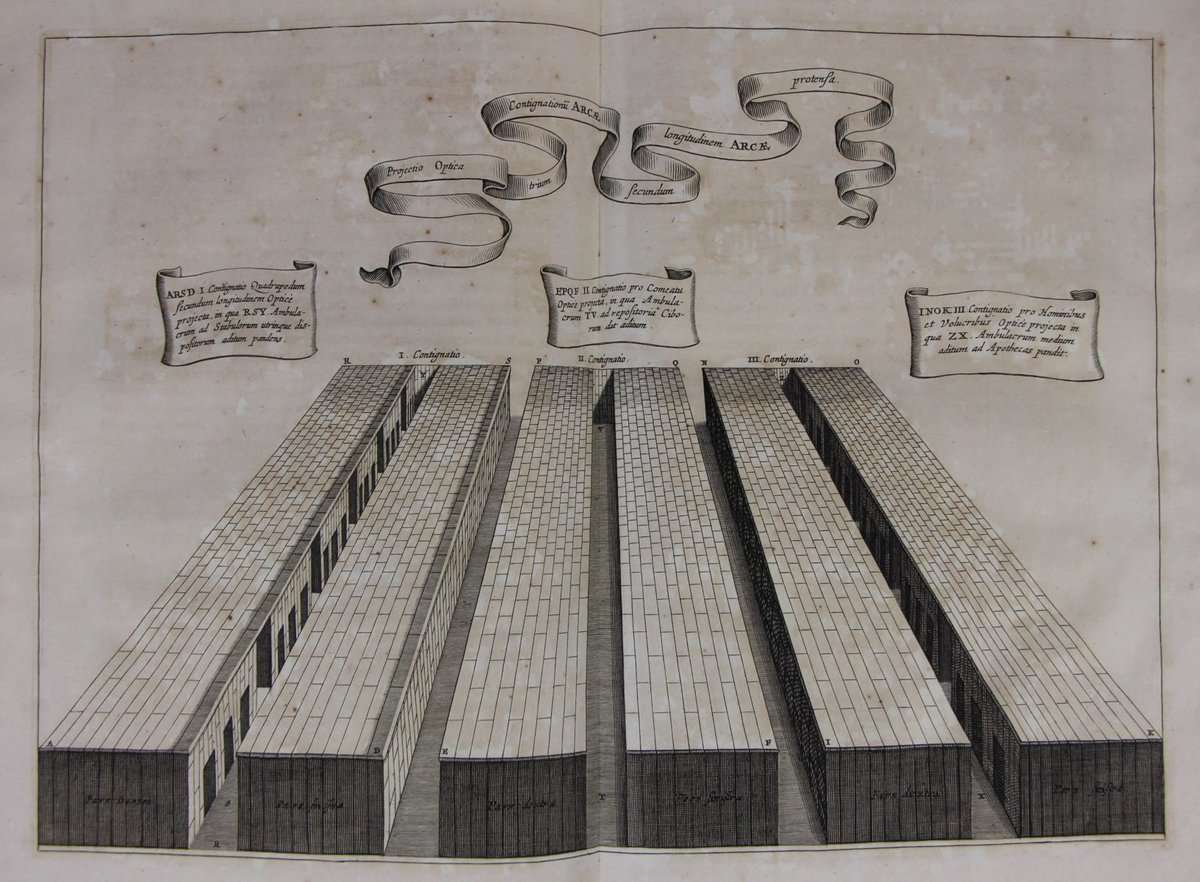 Projectio Optica
trium
Contignationũ ARCÆ
secundum
longitudinem ARCÆ
protensa.
ARSD I. Contignatio Quadrupedum
secundum longitudinem Opticè
projecta, in qua RSY. Ambula-
crum ad Stabulorum utrinque dis-
positorum aditum pandens.
EPQF II. Contignatio pro Comeatu
Opticè projecta, in qua Ambula-
crum TV. ad repositoria Cibo-
rum dat aditum.
INOK III Contignatio pro Hominibus
et Volucribus Opticè projecta in
qua ZX. Ambulacrum medium
aditum ad Apothecas pandit.
R I. Contignatio. S P II. Contignatio. Q N III. Contignatio. O
A D E F I K
Pars dextra Pars sinistra Pars dextra Pars sinistra
R